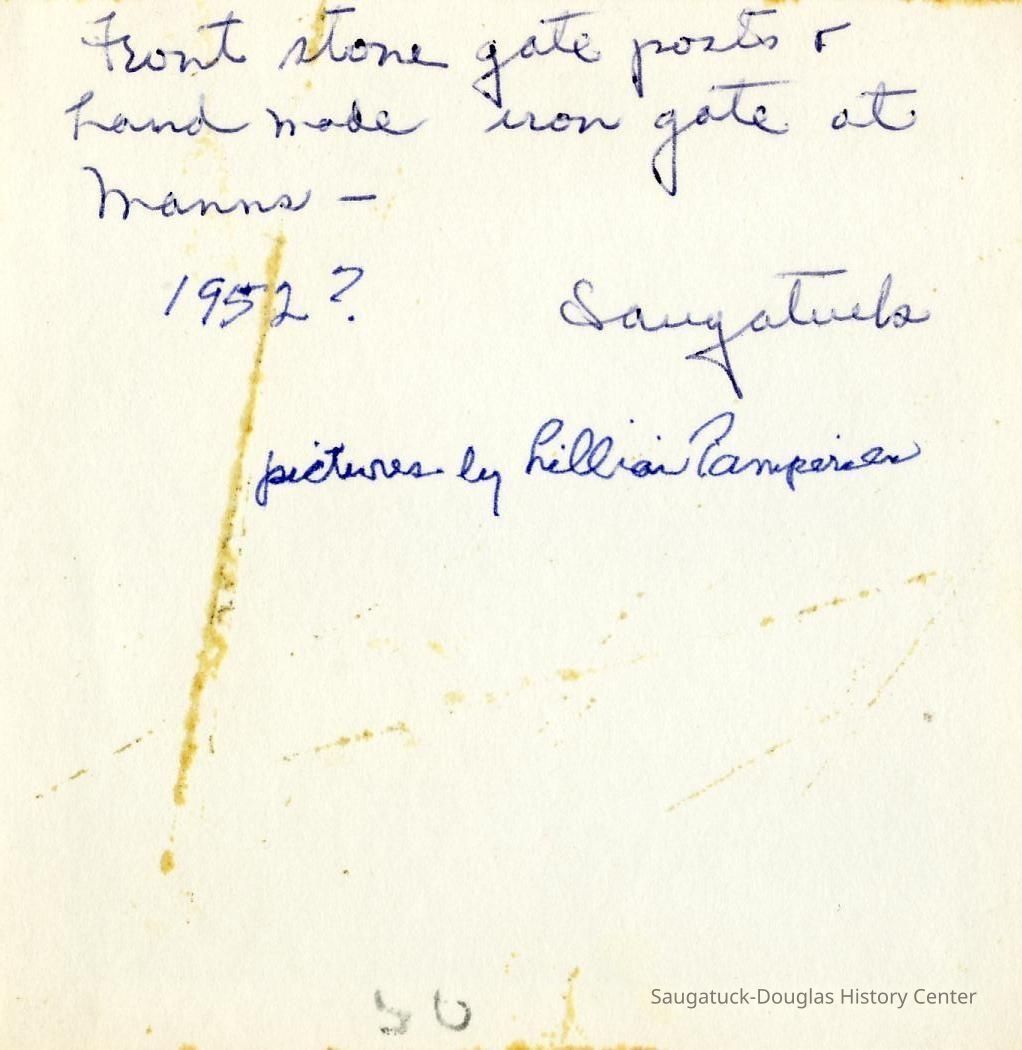 Front stone gate posts &
hand made iron gate at
Manns –
1952?
Saugatuck
pictures by Lillian
Saugatuck-Douglas History Center